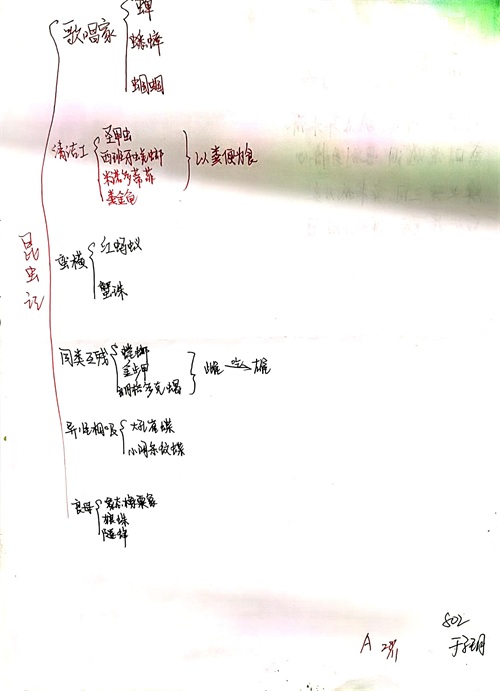 昆虫记
歌唱家
蝉
蟋蟀
蝈蝈
清洁工
圣甲虫
西班牙蜣螂
米诺多蒂菲
粪金龟
以粪便为食
蛮横
红蚂蚁
蟹珠
同类互残
螳螂
金步甲
朗格多克蝎
雌 吃 雄
异性相吸
大孔雀蝶
小阔条纹蝶
良母
狼蛛
802
A